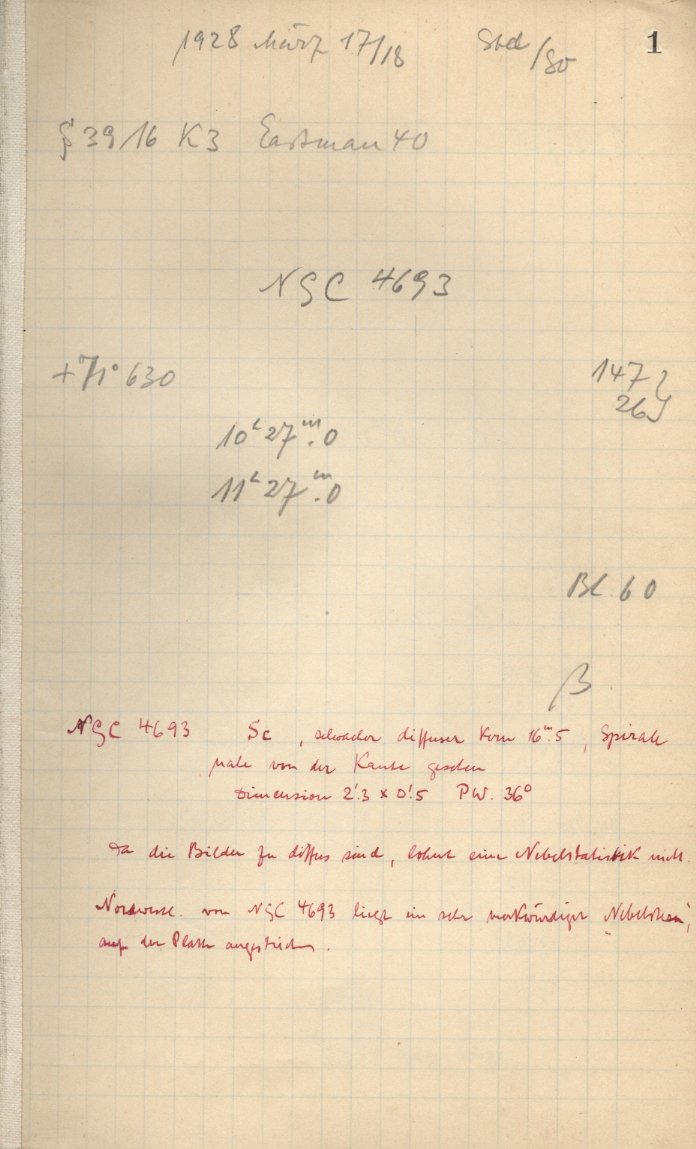 1928 März 17/18
1
39 16 K3 Eastman 40
NGC 4693
+71° 630
147
26
10ʰ27ᵐ.0
11ʰ27ᵐ.0
Bl. 60
β
NGC 4693 Sc, schwacher diffuser Kern 16ᵐ.5, Spirale
nahe von der Kante gesehen
Dimension 2'.3 x 0'.5 PW. 36°
Da die Bilder zu diffus sind, lohnt eine Nebelstatistik nicht.
Nordwestl. von NGC 4693 liegt ein sehr merkwürdiger
auf der Platte angestrichen.